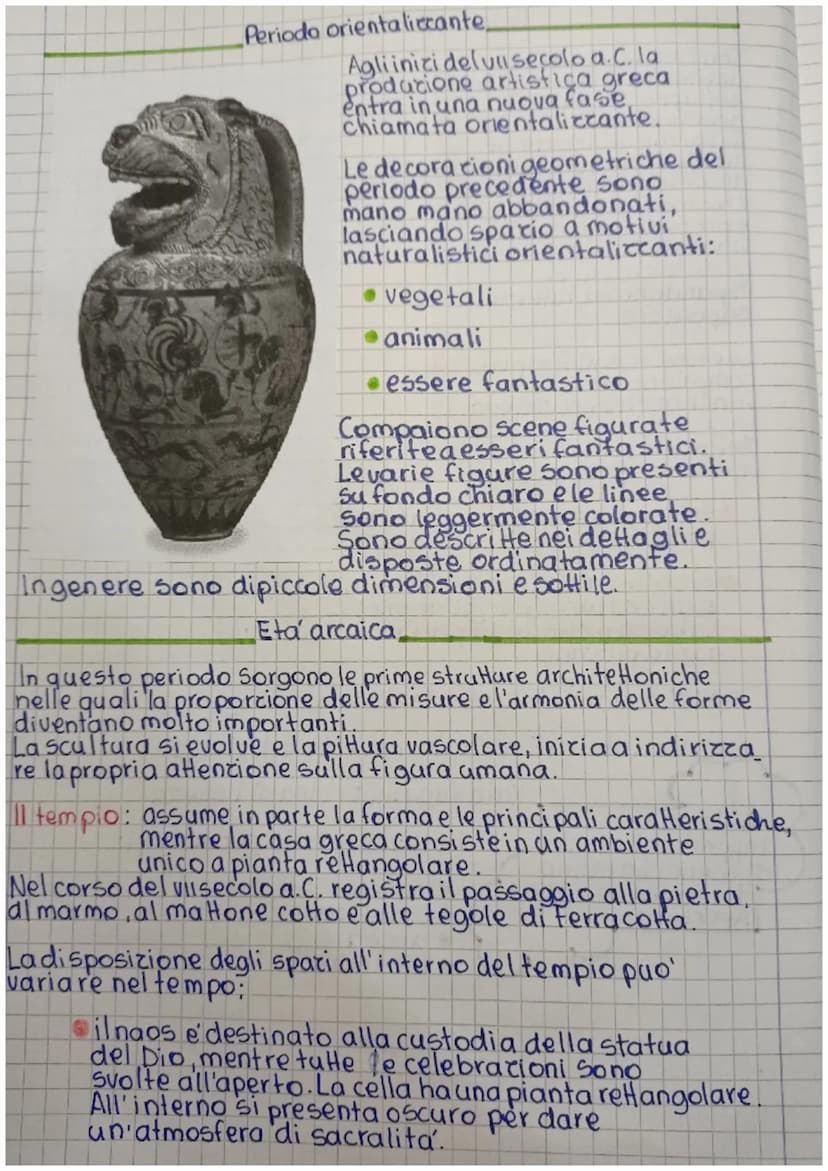 Periodo orientalizzante
Agli inizi del VII secolo a.C. la
produzione artistica greca
entra in una nuova fase
chiamata orientalizzante.
Le decorazioni geometriche del
periodo precedente sono
mano mano abbandonati,
lasciando spazio a motivi
naturalistici orientalizzanti:
• vegetali
• animali
• essere fantastico
Compaiono scene figurate
riferite a esseri fantastici.
Le varie figure sono presenti
su fondo chiaro e le linee
sono leggermente colorate.
Sono descritte nei dettagli e
disposte ordinatamente.
In genere sono di piccole dimensioni e sottile.
Eta' arcaica
In questo periodo sorgono le prime strutture architettoniche
nelle quali la proporzione delle misure e l'armonia delle forme
diventano molto importanti.
La scultura si evolve e la pittura vascolare, inizia a indirizza_
re la propria attenzione sulla figura umana.
Il tempio: assume in parte la forma e le principali caratteristiche,
mentre la casa greca consiste in un ambiente
unico a pianta rettangolare.
Nel corso del VII secolo a.C. registra il passaggio alla pietra,
al marmo, al mattone cotto e alle tegole di terracotta.
La disposizione degli spazi all'interno del tempio puo'
variare nel tempo:
• il naos e' destinato alla custodia della statua
del Dio, mentre tutte le celebrazioni sono
svolte all'aperto. La cella ha una pianta rettangolare.
All'interno si presenta oscuro per dare
un'atmosfera di sacralita'.